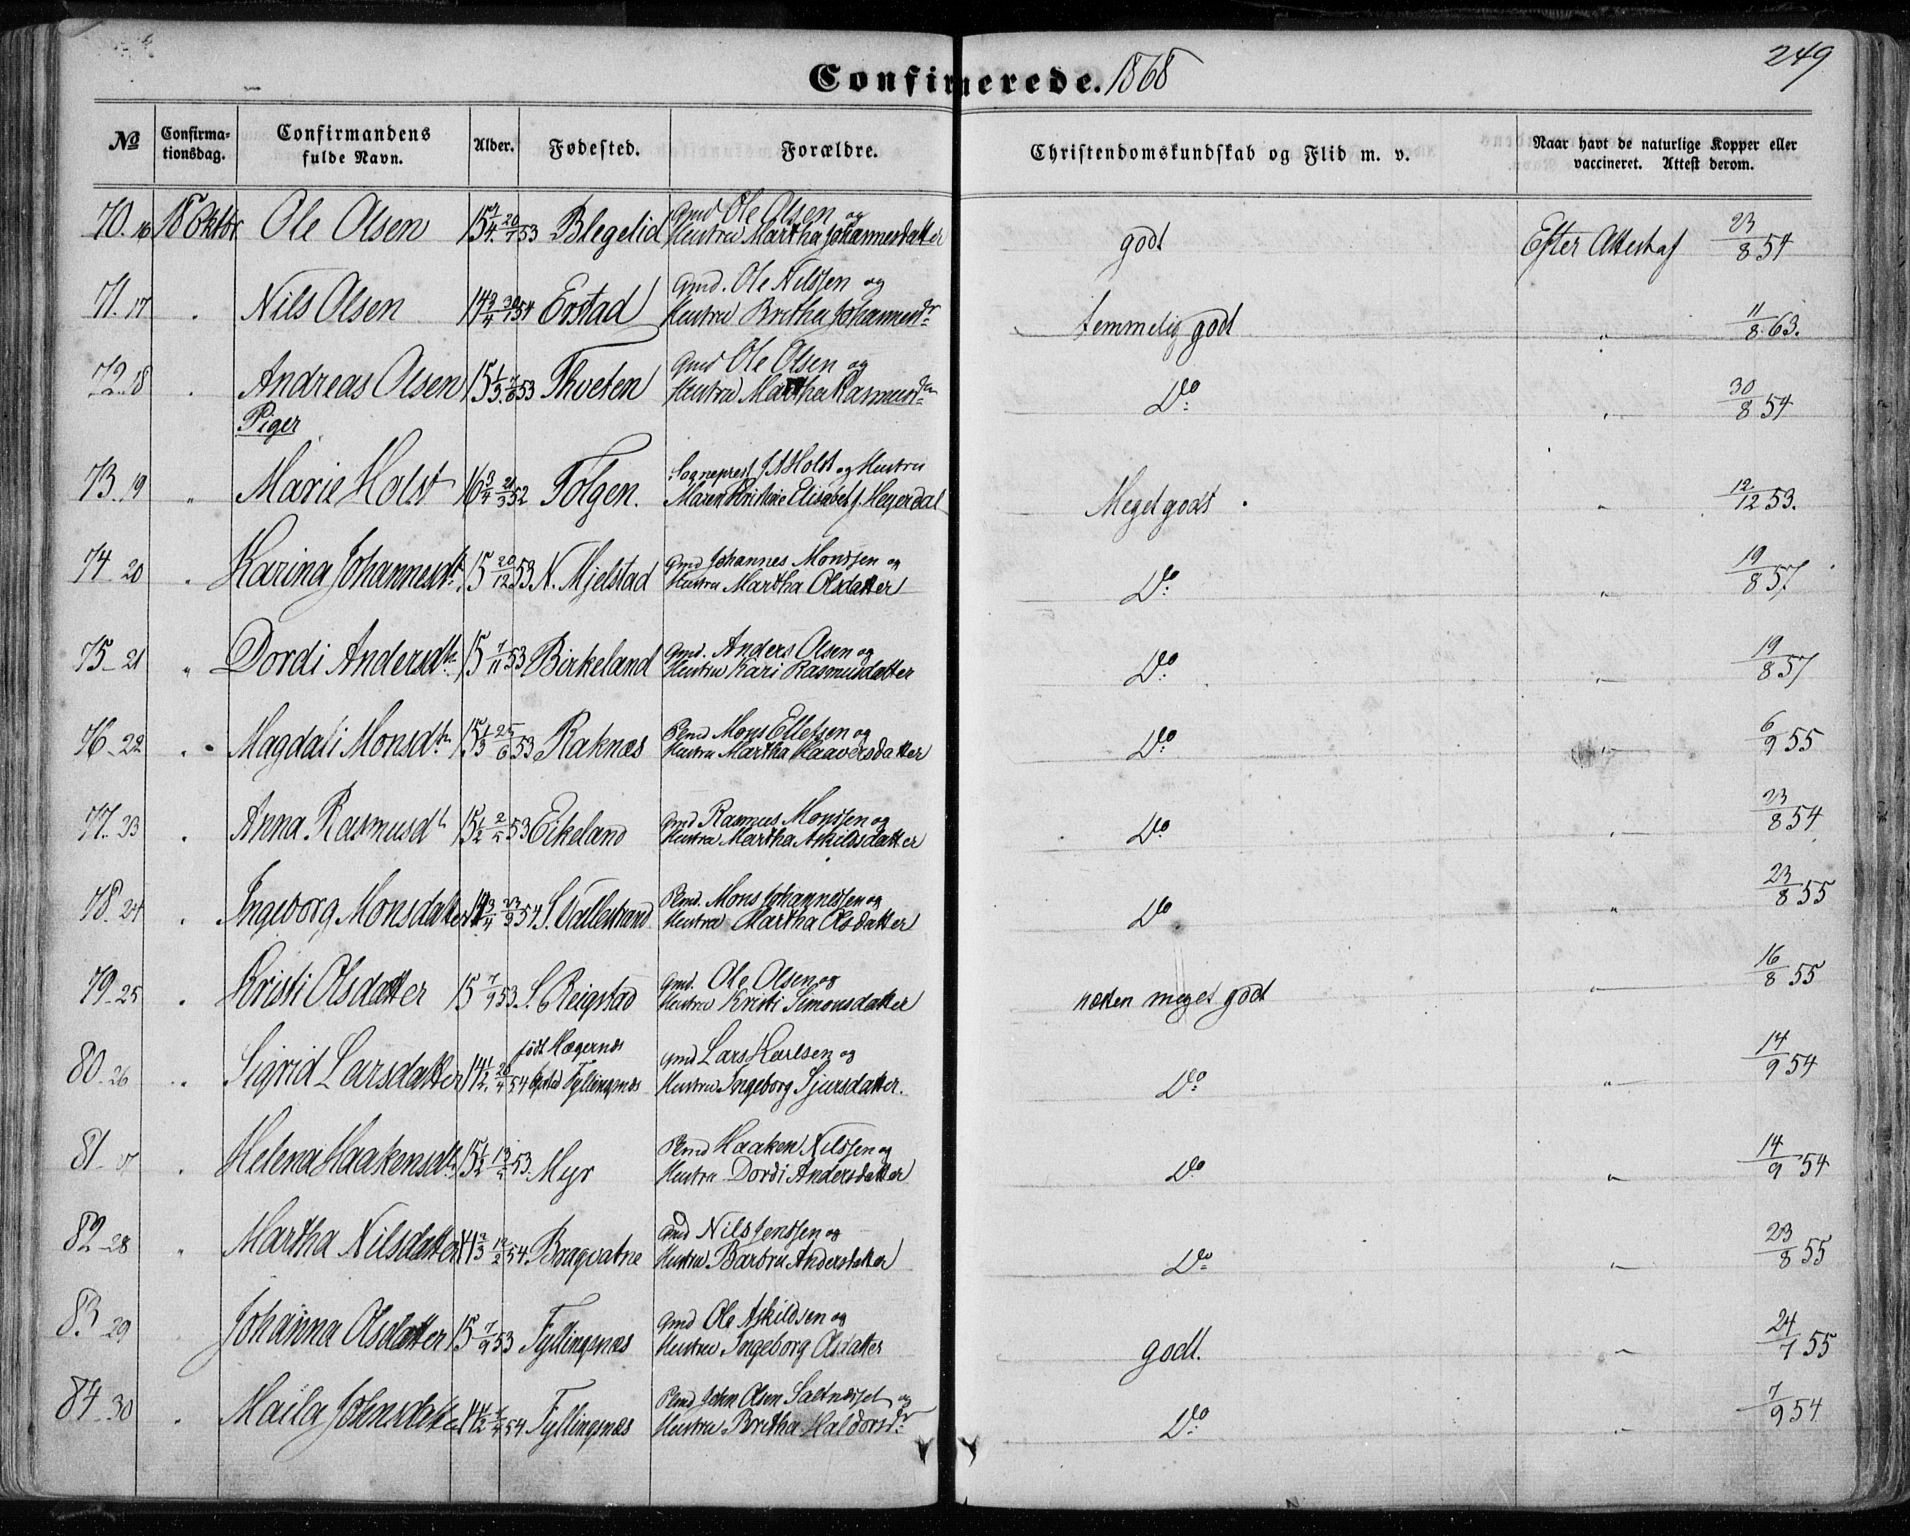 249
Confirmerede. 1868
No
Confirmationsdag.
Confirmandens fulde Navn.
Alder.
Fødested.
Forældre.
Christendomskundskab og Flid m. v.
Naar havt de naturlige Kopper eller vaccineret. Attest derom.
70. 16 18 Oktbr Ole Olsen 15 3/4 20/1 53 Blegelid Gmd Ole Olsen og Hustru Martha Johannesdatter godt Efter Attest af 23/8 54
71. 17 " Nils Olsen 14 3/4 54 Erstad Gmd. Ole Nilssen og Hustru Britha Johannesdr temmelig godt " 11/8 63.
72. 18 " Andreas Olsen 15 1/3 53 Thveten Gmd Ole Olsen og Hustru Martha Rasmusdr Do " 30/8 54
Piger
73. 19 " Marie Holst 16 3/4 52 Tolgen. Sogneprest J A Holst og Hustru Maren Kristine Elisabeth f. Heyerdal Meget godt " 12/12 53.
74. 20 " Karina Johannesdtr 15 20/12 53 N. Mjelstad Gmd Johannes Monssen og Hustru Martha Olsdatter Do " 19/8 57
75. 21 " Dordi Andersdtr 15 7/11 53 Birkeland Gmd. Anders Olsen og Hustru Kari Rasmusdatter Do " 19/8 57
76. 22 " Magdali Monsdtr 15 1/3 25/6 53 Raknæs Plmd Mons Ellefsen og Hustru Martha Haaversdatter Do " 6/9 55
77. 23 " Anna Rasmusdtr 15 1/2 53 Eikeland Gmd Rasmus Monssen og Hustru Martha Askildsdatter Do " 23/8 54
78. 24 " Ingeborg Monsdatter 14 3/4 54 S. Vallestrand Plmd. Mons Johannessen og Hustru Martha Olsdatter Do " 23/8 55
79. 25 " Kristi Olsdatter 15 7/9 53. S. Reigstad Gmd. Ole Olsen og Hustru Kristi Simonsdatter næsten meget godt " 16/8 55
80. 26 " Sigrid Larsdatter 14 1/2 20/4 54 født Hægernæs Opfød Fyllingsnæs Gmd Lars Karlsen og Hustru Ingeborg Sjursdatter. Do " 14/9 54
81. 27 " Helena Haakensdtr 15 1/2 53. Myr Plmd Haaken Nilssen og Hustru Dordi Andersdatter Do " 14/9 54
82. 28 " Martha Nilsdatter 14 2/3 12/2 54. Bragvatne Gmd Nils Jenssen og Hustru Barbru Andersdatter Do " 23/8 55
83. 29 Johanna Olsdatter 15 7/9 53 Fyllingsnæs Gmd Ole Askildsen og Hustru Ingeborg Olsdatter godt. " 24/7 55
84. 30 " Maila Johnsdatter 14 1/2 54 Fyllingsnæs Plmd John Olsen og Hustru Britha Haldorsdr Do " 7/9 54